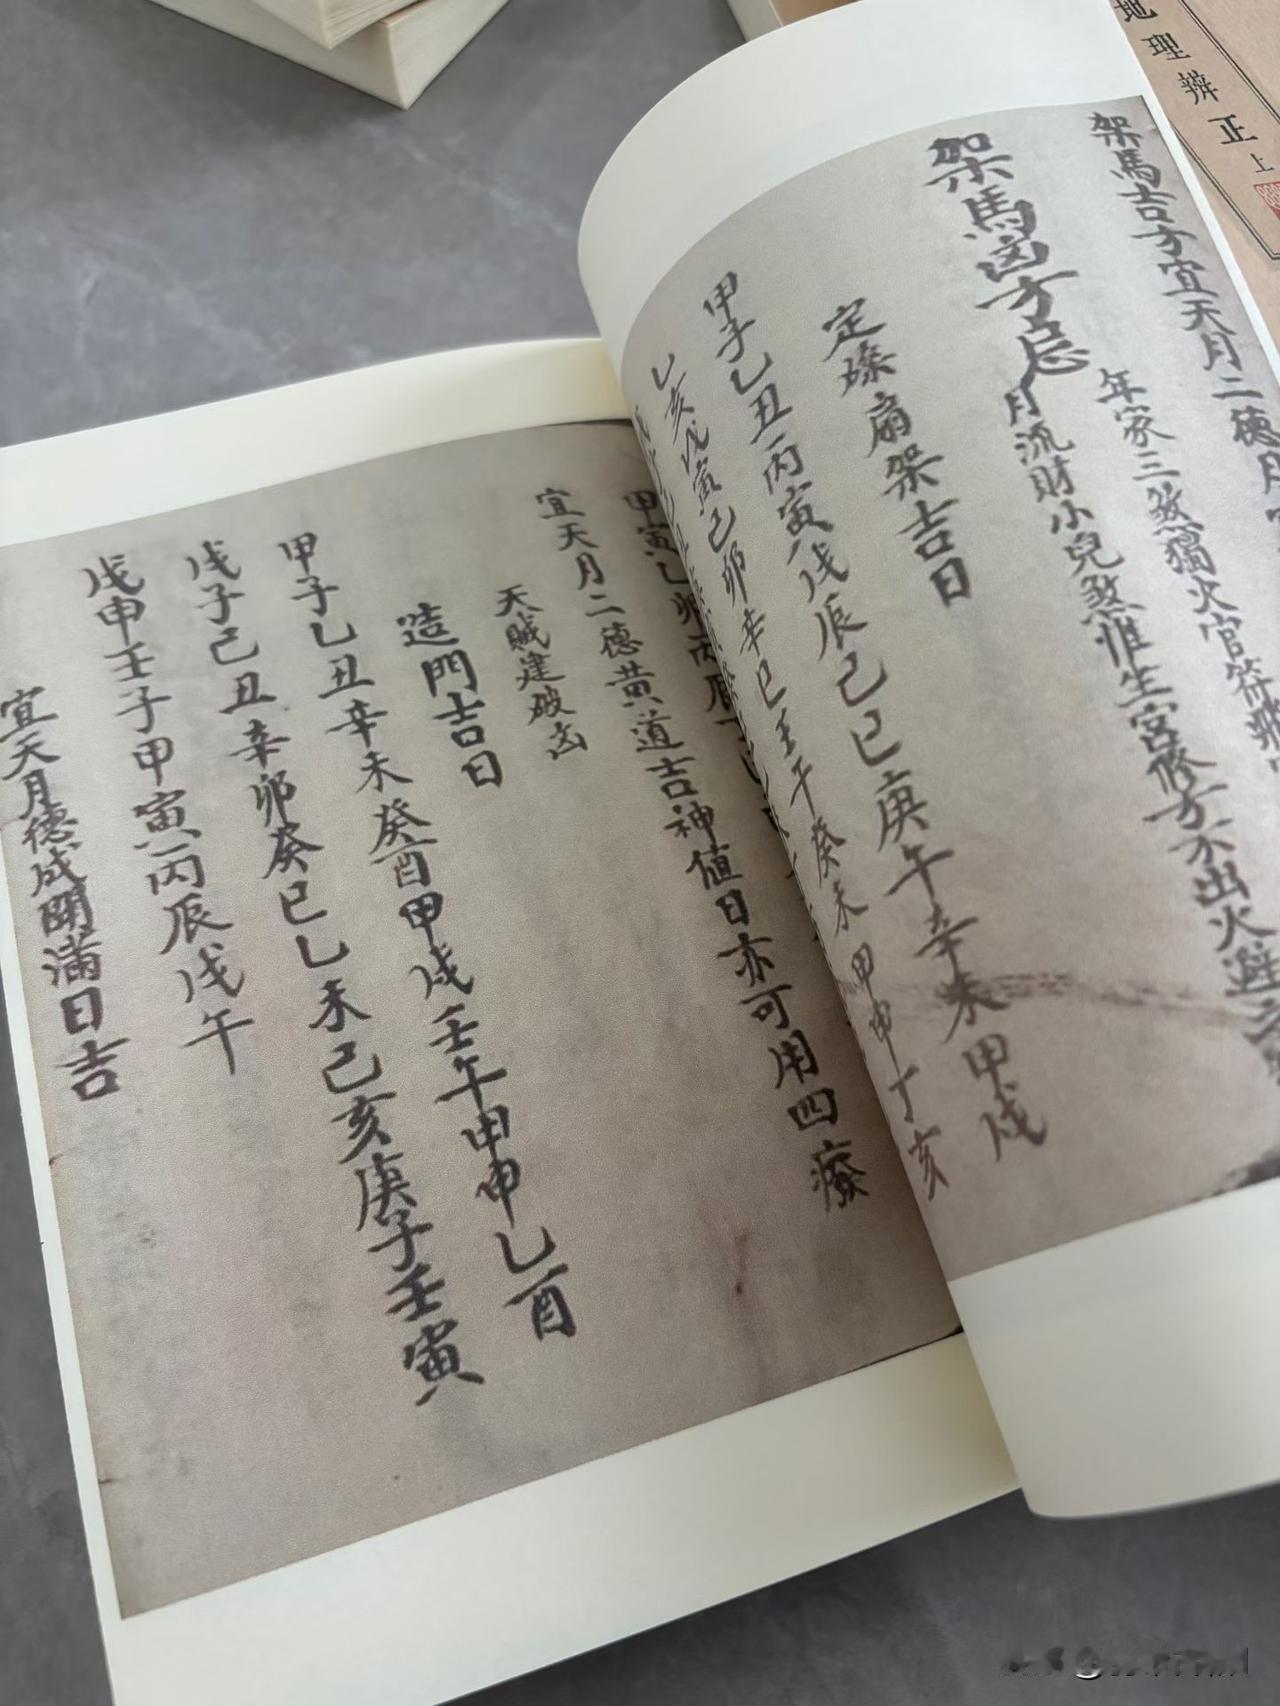 地理辨正 上
架馬吉方宜天月二德月
年家三煞獨火官符飛
架馬凶方忌
月流財小兒煞惟生宮修方不出火避
定磉扇架吉日
甲子乙丑丙寅戊辰己巳庚午辛未甲戌
乙亥戊寅己卯辛巳壬午癸未甲申丁亥
甲寅乙卯丙辰
宜天月二德黄道吉神值日亦可用四廢
天贼建破凶
造門吉日
甲子乙丑辛未癸酉甲戌壬午甲申乙酉
戊子己丑辛卯癸巳乙未己亥庚子壬寅
戊申壬子甲寅丙辰戊午
宜天月德成開滿日吉